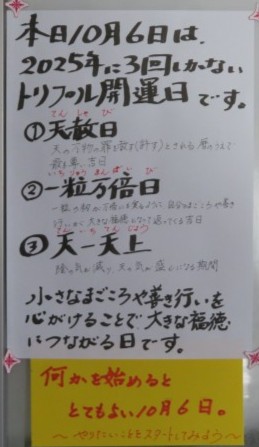 本日10月6日は、
2025年に3回しかない
トリプル開運日です。
てんしゃび
①天赦日
天の万物の罪を赦す(許す)とされる 暦のうえで
最も尊い吉日
いちりゅうまんばいび
②一粒万倍日
一粒の籾が万倍にも実るように、自分のまごころや尊き
行いが大きな福徳となって返ってくる吉日
てんいちてんじょう
③天一天上
陰の気が減り、天の気が盛んになる期間
小さなまごころや尊き行いを
心がけることで大きな福徳
につながる日です。
何かを始めると
とてもよい10月6日。
〜やりたいことをスタートしてみよう〜